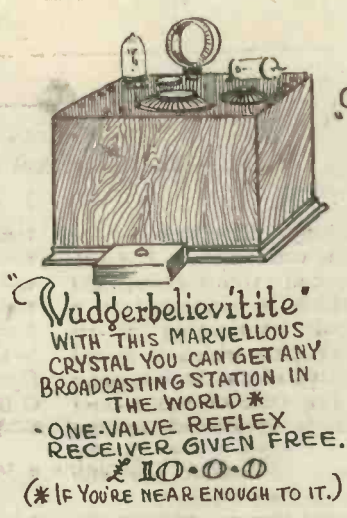 "Wudgerbelievitite"
WITH THIS MARVELLOUS
CRYSTAL YOU CAN GET ANY
BROADCASTING STATION IN
THE WORLD *
- ONE-VALVE REFLEX
RECEIVER GIVEN FREE.
£10·0·0
(* IF YOU'RE NEAR ENOUGH TO IT.)